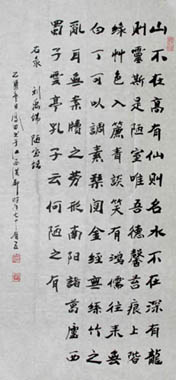 山不在高有仙則名水不在深有龍
則靈斯是陋室唯吾德馨苔痕上階
綠艸色入簾青談笑有鴻儒往来無
白丁可以調素琴閱金經無絲竹之
亂耳無案牘之勞形南陽諸葛廬西
蜀子雲亭孔子云何陋之有
右录 刘禹锡 陋室铭
乙酉年